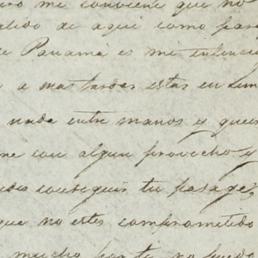 me conviene que no
de aqui como pasa
e Panamá es mi
a mas tardar estar en Lim
nada entre manos y quees
me con algun provecho y
conseguir tu pasage,
que no estes comprometido
mucho no puedo